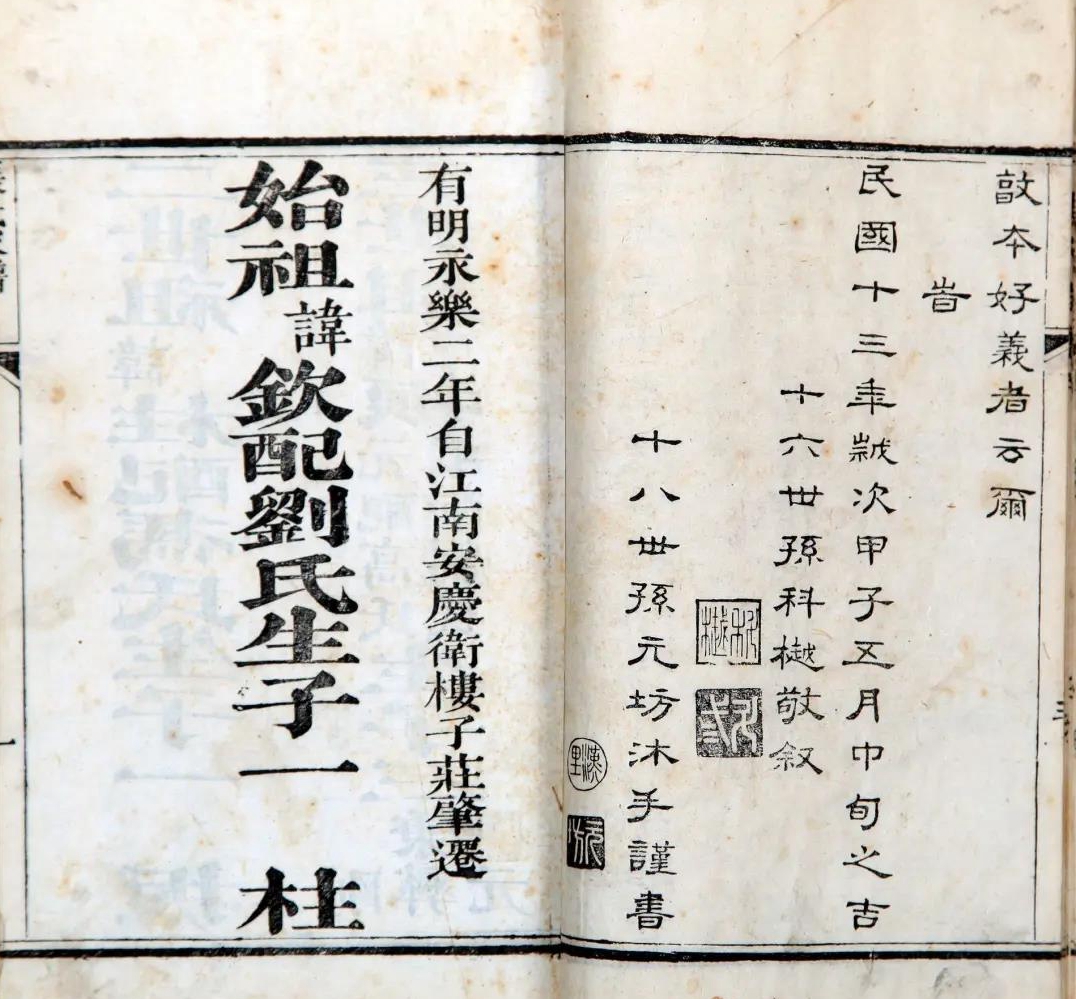 敦本好義者云爾
旹
民國十三年歲次甲子五月中旬之吉
十六世孫科樾敬叙
科樾
十八世孫元坊沐手謹書
漢里
有明永樂二年自江南安慶衛樓子莊肇遷
始祖諱欽配劉氏生子一柱